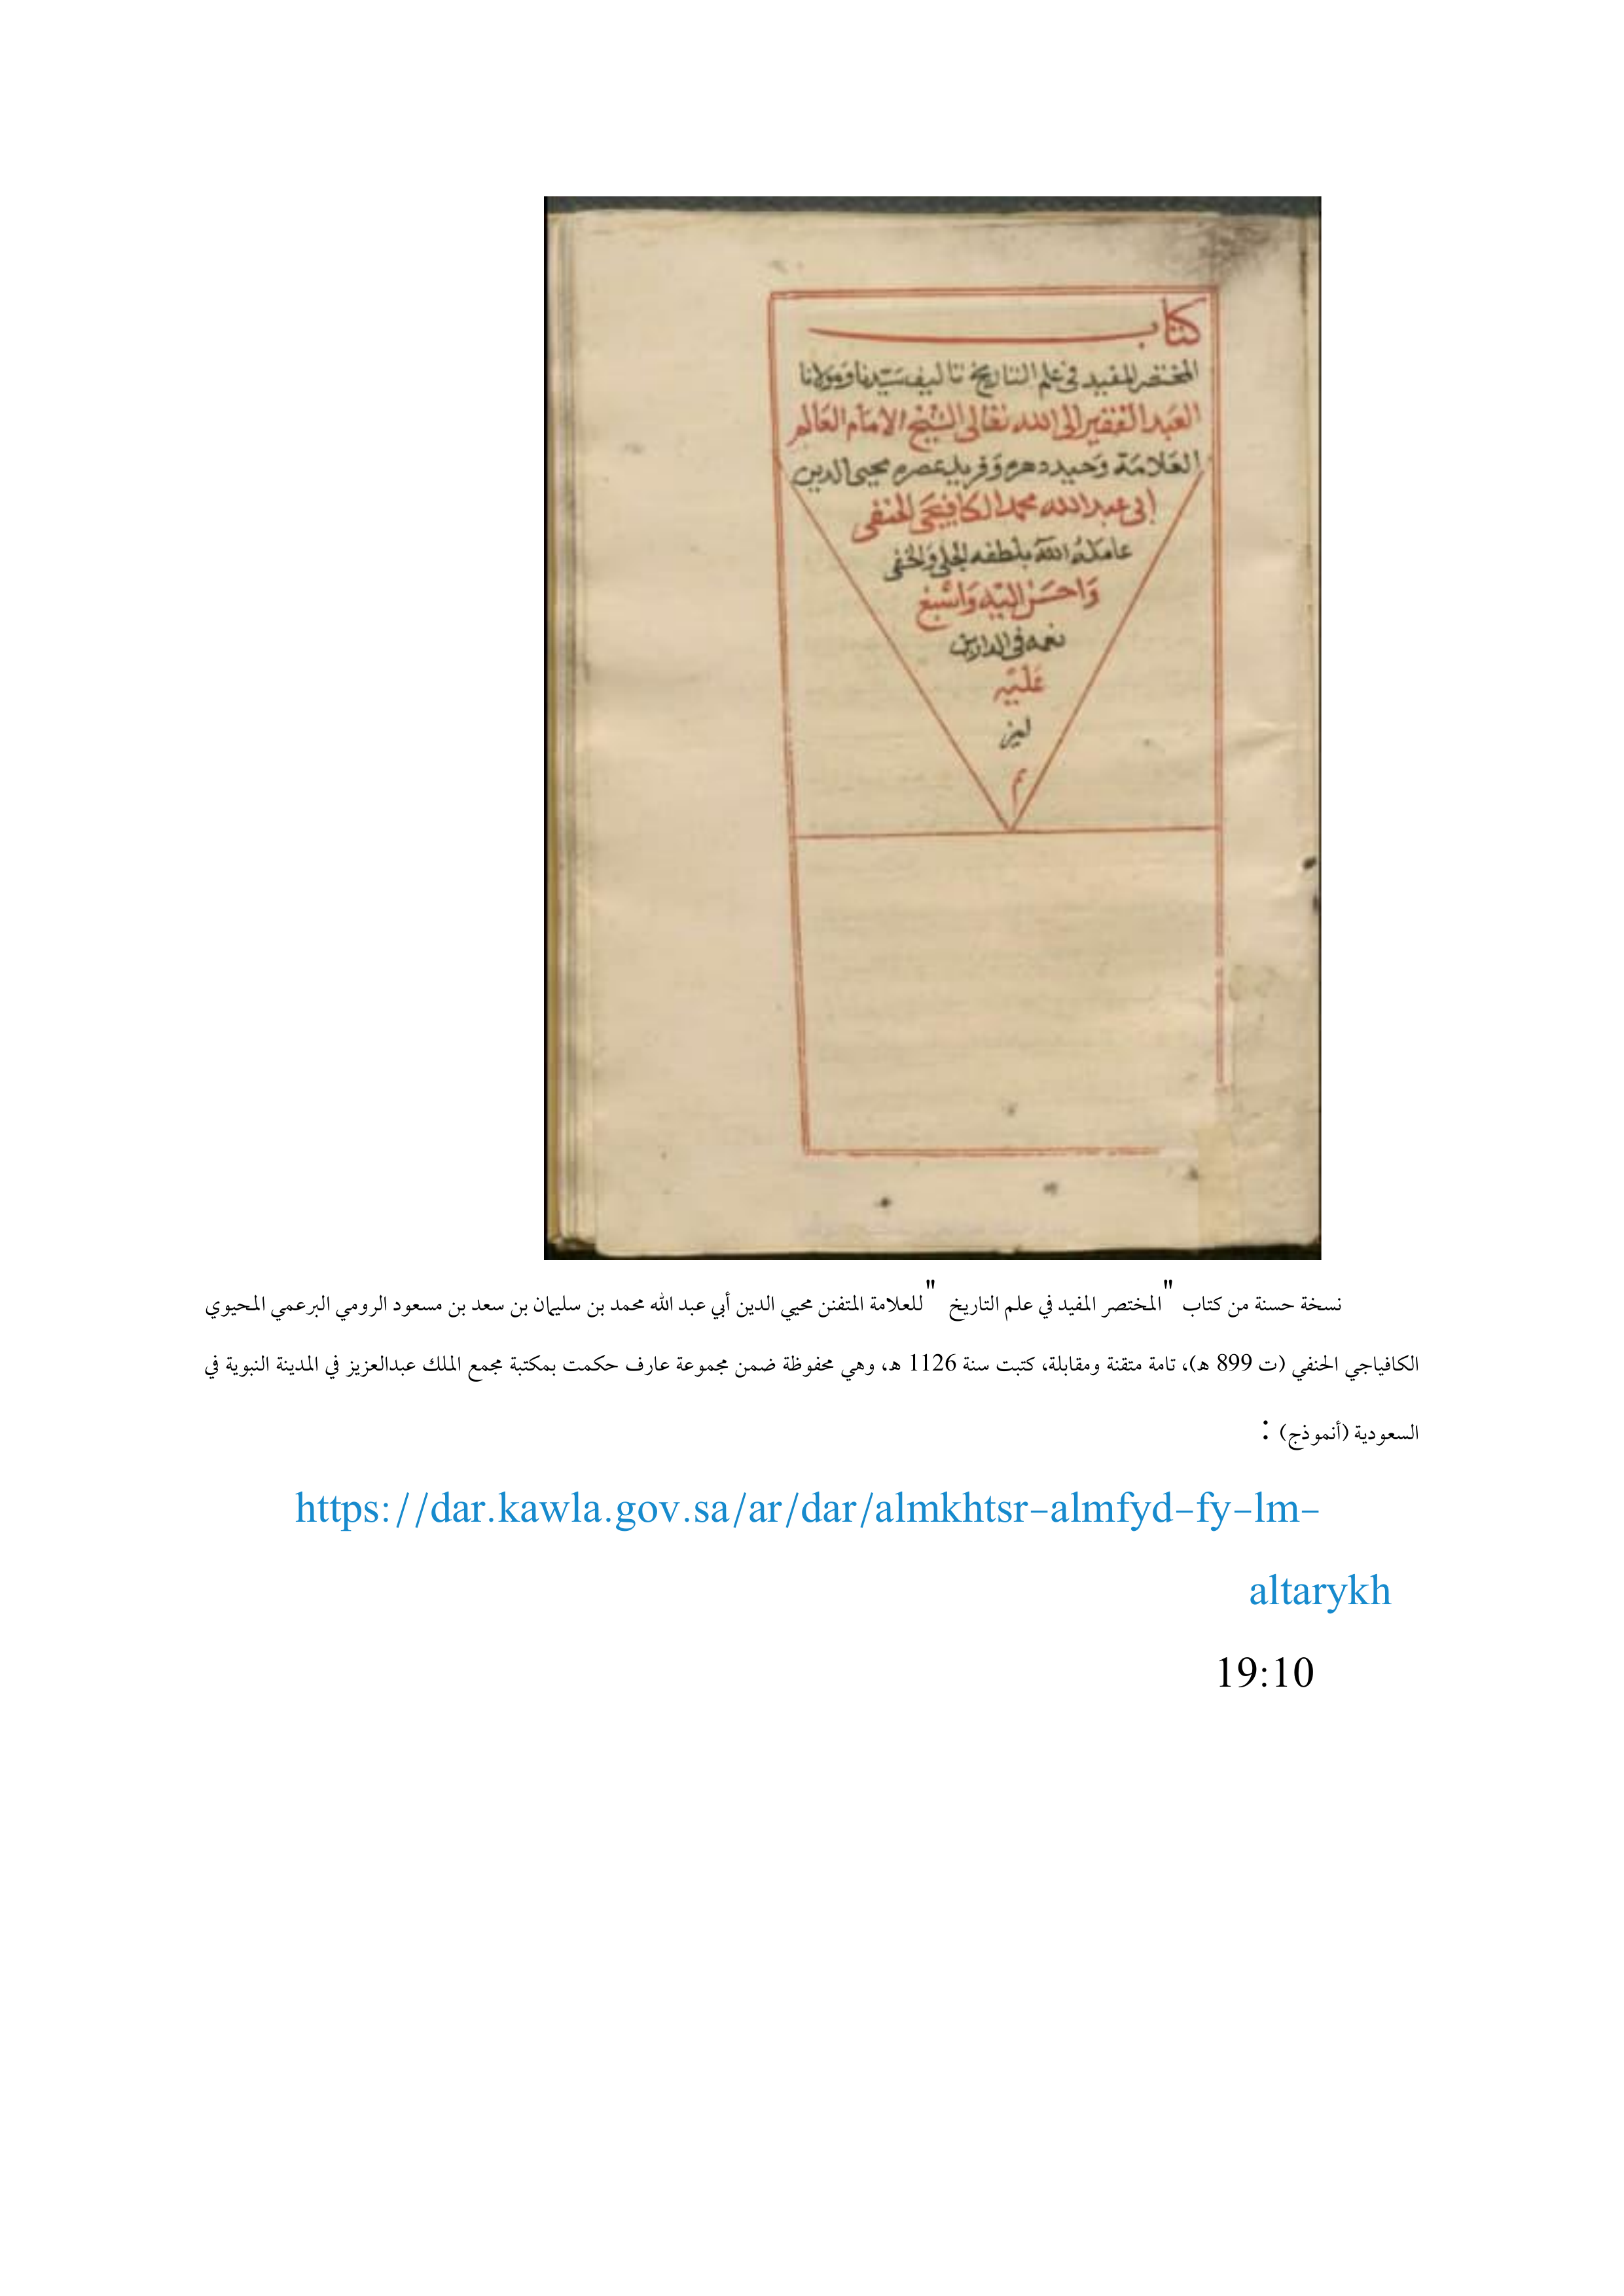 كتاب
المختصر المفيد في علم التاريخ تاليف سيدنا ومولانا
العبد الفقير الى الله تعالى الشيخ الامام العالم
العلامة وحيد دهره وفريد عصره محيي الدين
ابي عبد الله محمد الكافيجي الحنفي
عامله الله بلطفه الجلي والخفي
واحسن اليه واسبغ
نعمه في الدارين
عليه
م
نسخة حسنة من كتاب "المختصر المفيد في علم التاريخ "للعلامة المتفنن محيي الدين أبي عبد الله محمد بن سليمان بن سعد بن مسعود الرومي البرعمي المحيوي
الكافياجي الحنفي (ت 899 هـ)، تامة متقنة ومقابلة، كتبت سنة 1126 هـ، وهي محفوظة ضمن مجموعة عارف حكمت بمكتبة مجمع الملك عبدالعزيز في المدينة النبوية في
السعودية (أنموذج) :
https://dar.kawla.gov.sa/ar/dar/almkhtsr-almfyd-fy-lm-
altarykh
19:10